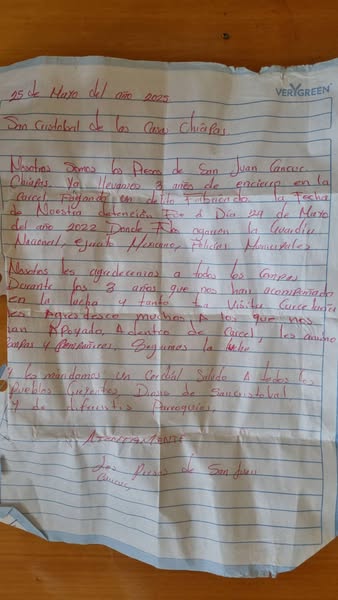 VERYGREEN
25 de Mayo del año 2025
San Cristobal de las Casas Chiapas
Nosotros somos los Presos de San Juan Cancuc
Chiapas. Ya llevamos 3 años de encierro en la
Carcel Pagando un delito Fabricado. la Fecha
de Nuestra detención Fue el Dia 24 de Mayo
del año 2022 Donde Nos la Guardia
Nacional, ejercito Mexicano, Policias Municipales
Nosotros les agradecemos a todos los
Durante los 3 años que nos han acompañado
en la lucha y tanto la Visita
Agradesco muchos A los que nos
han Apoyado, Adentro de Carcel, les
y Seguimos la lucha
Y les mandamos un Cordial Saludo A todos los
Pueblos Creyentes, de San Cristobal
y de diferentes Parroquias,
Atentamente
Los Presos de San Juan
Cancuc,